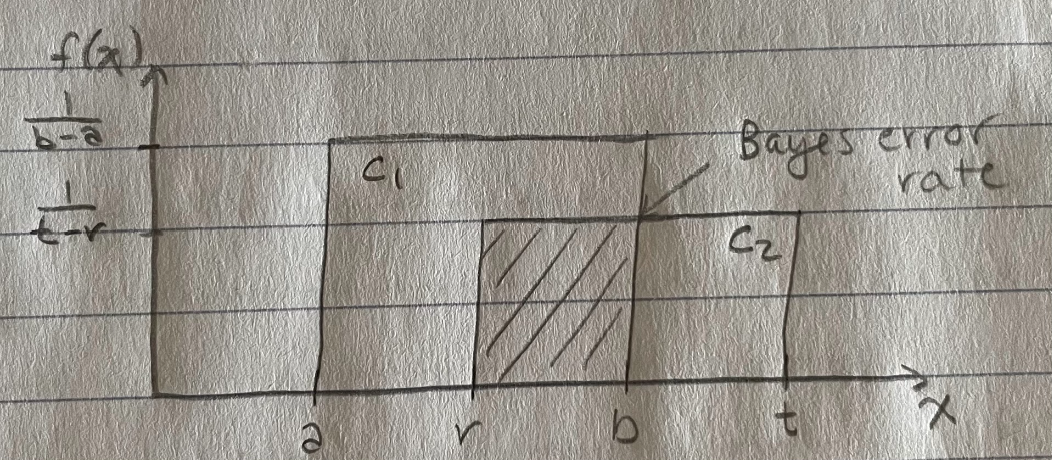 f(x)
1
b-a
1
t-r
C1
Bayes error
rate
C2
a
r
b
t
x